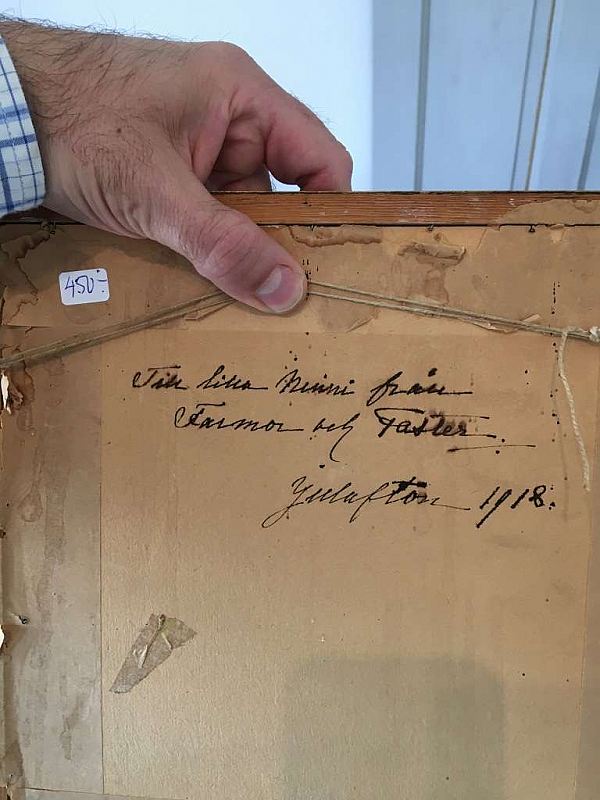 450:-
Till lilla Minni från
Farmor och Faster.
Julafton 1918.